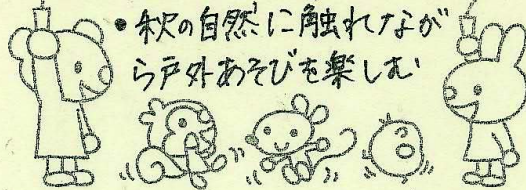 •秋の自然に触れなが
ら戸外あそびを楽しむ